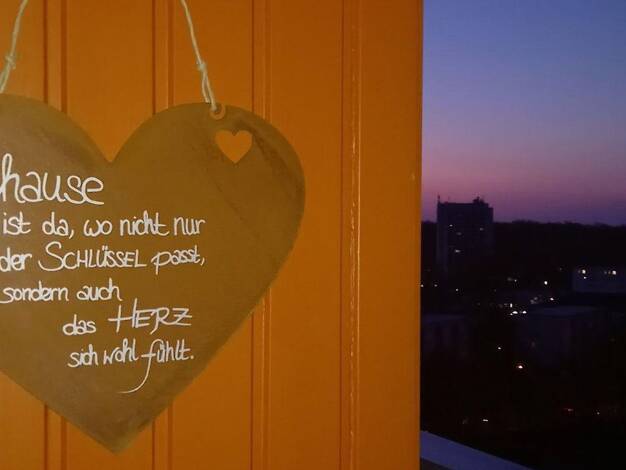 hause
ist da, wo nicht nur
der SCHLÜSSEL passt,
sondern auch
das HERZ
sich wohl fühlt.